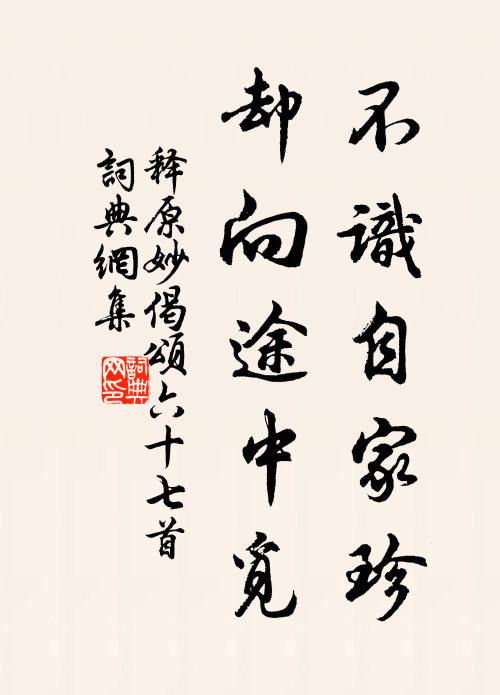 不識自家珍
却向途中覓
释原妙偈頌六十七首
詞典網集
詞典網印